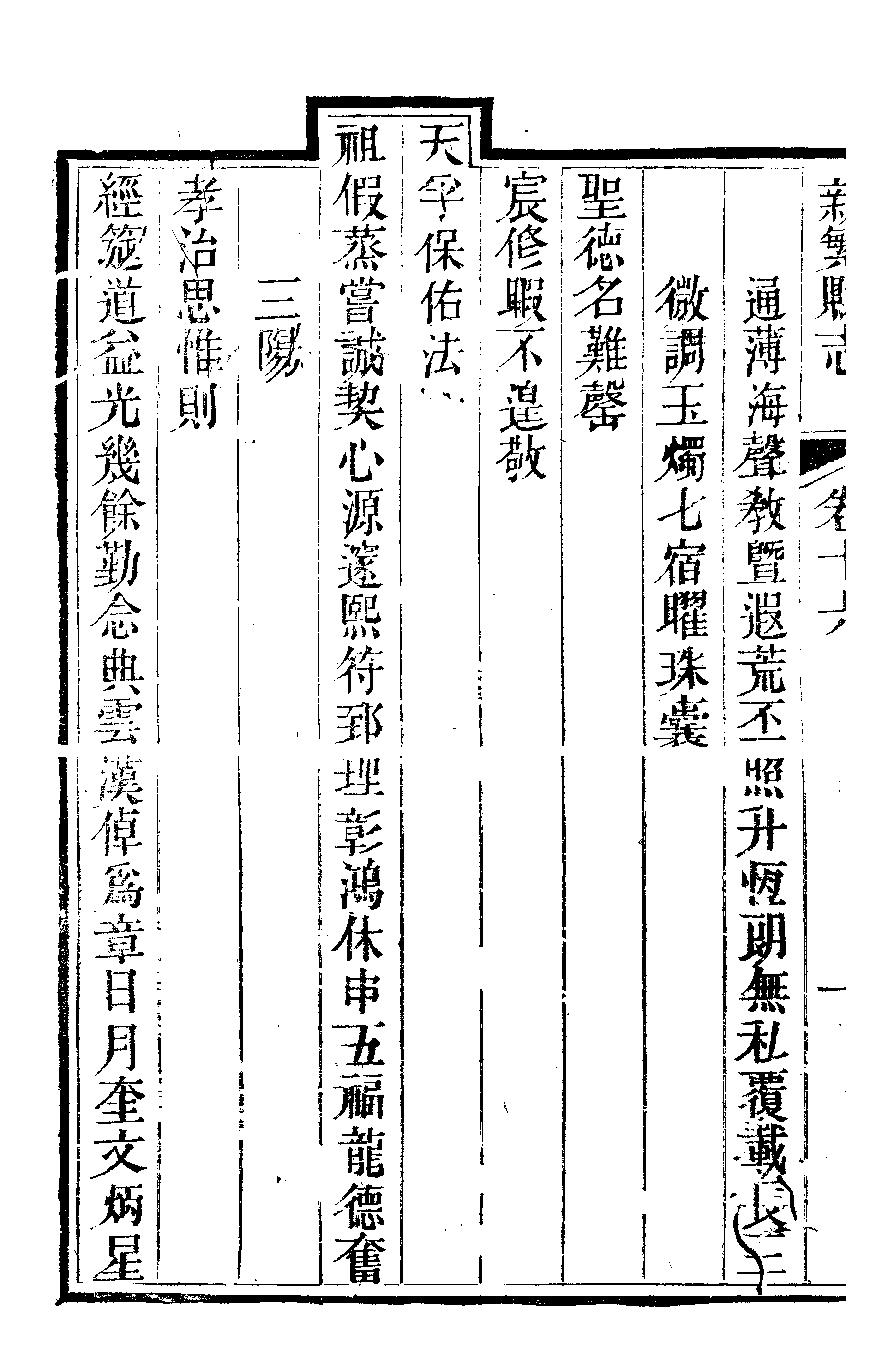 新繁縣志 卷十六 一
通薄海聲教暨遐荒丕照升恆朗無私覆載長三
微調玉燭七宿曜珠囊
聖德名難罄
宸修暇不遑敬
天孚保佑法
祖假蒸嘗誠契心源遠熙符郅理彰鴻休申五福龍德奮
三陽
孝治思惟則
經筵道益光幾餘勤念典雲漢倬為章日月奎文炳星